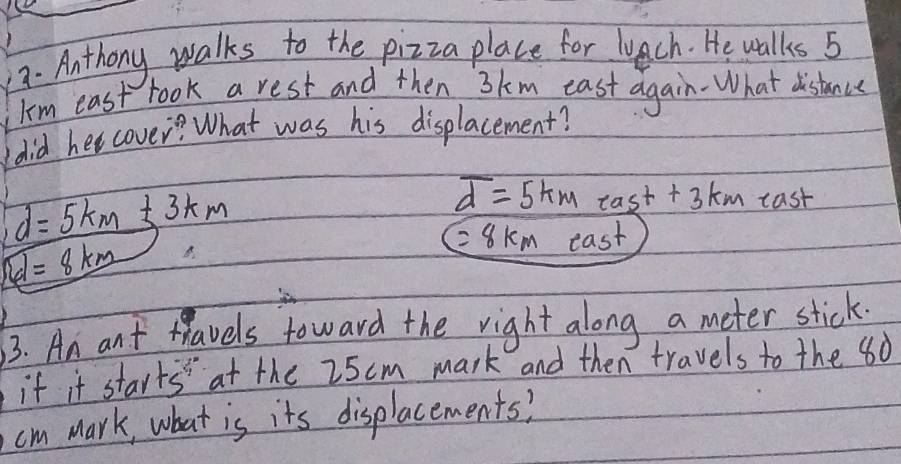 2. Anthony walks to the pizza place for lunch. He walks 5
km east took a rest and then 3km east again. What distance
did he cover? What was his displacement?
d = 5km + 3km
d = 8 km
d = 5km east + 3km east
= 8 km east
3. An ant travels toward the right along a meter stick.
if it starts at the 25cm mark and then travels to the 80
cm mark, what is its displacements?